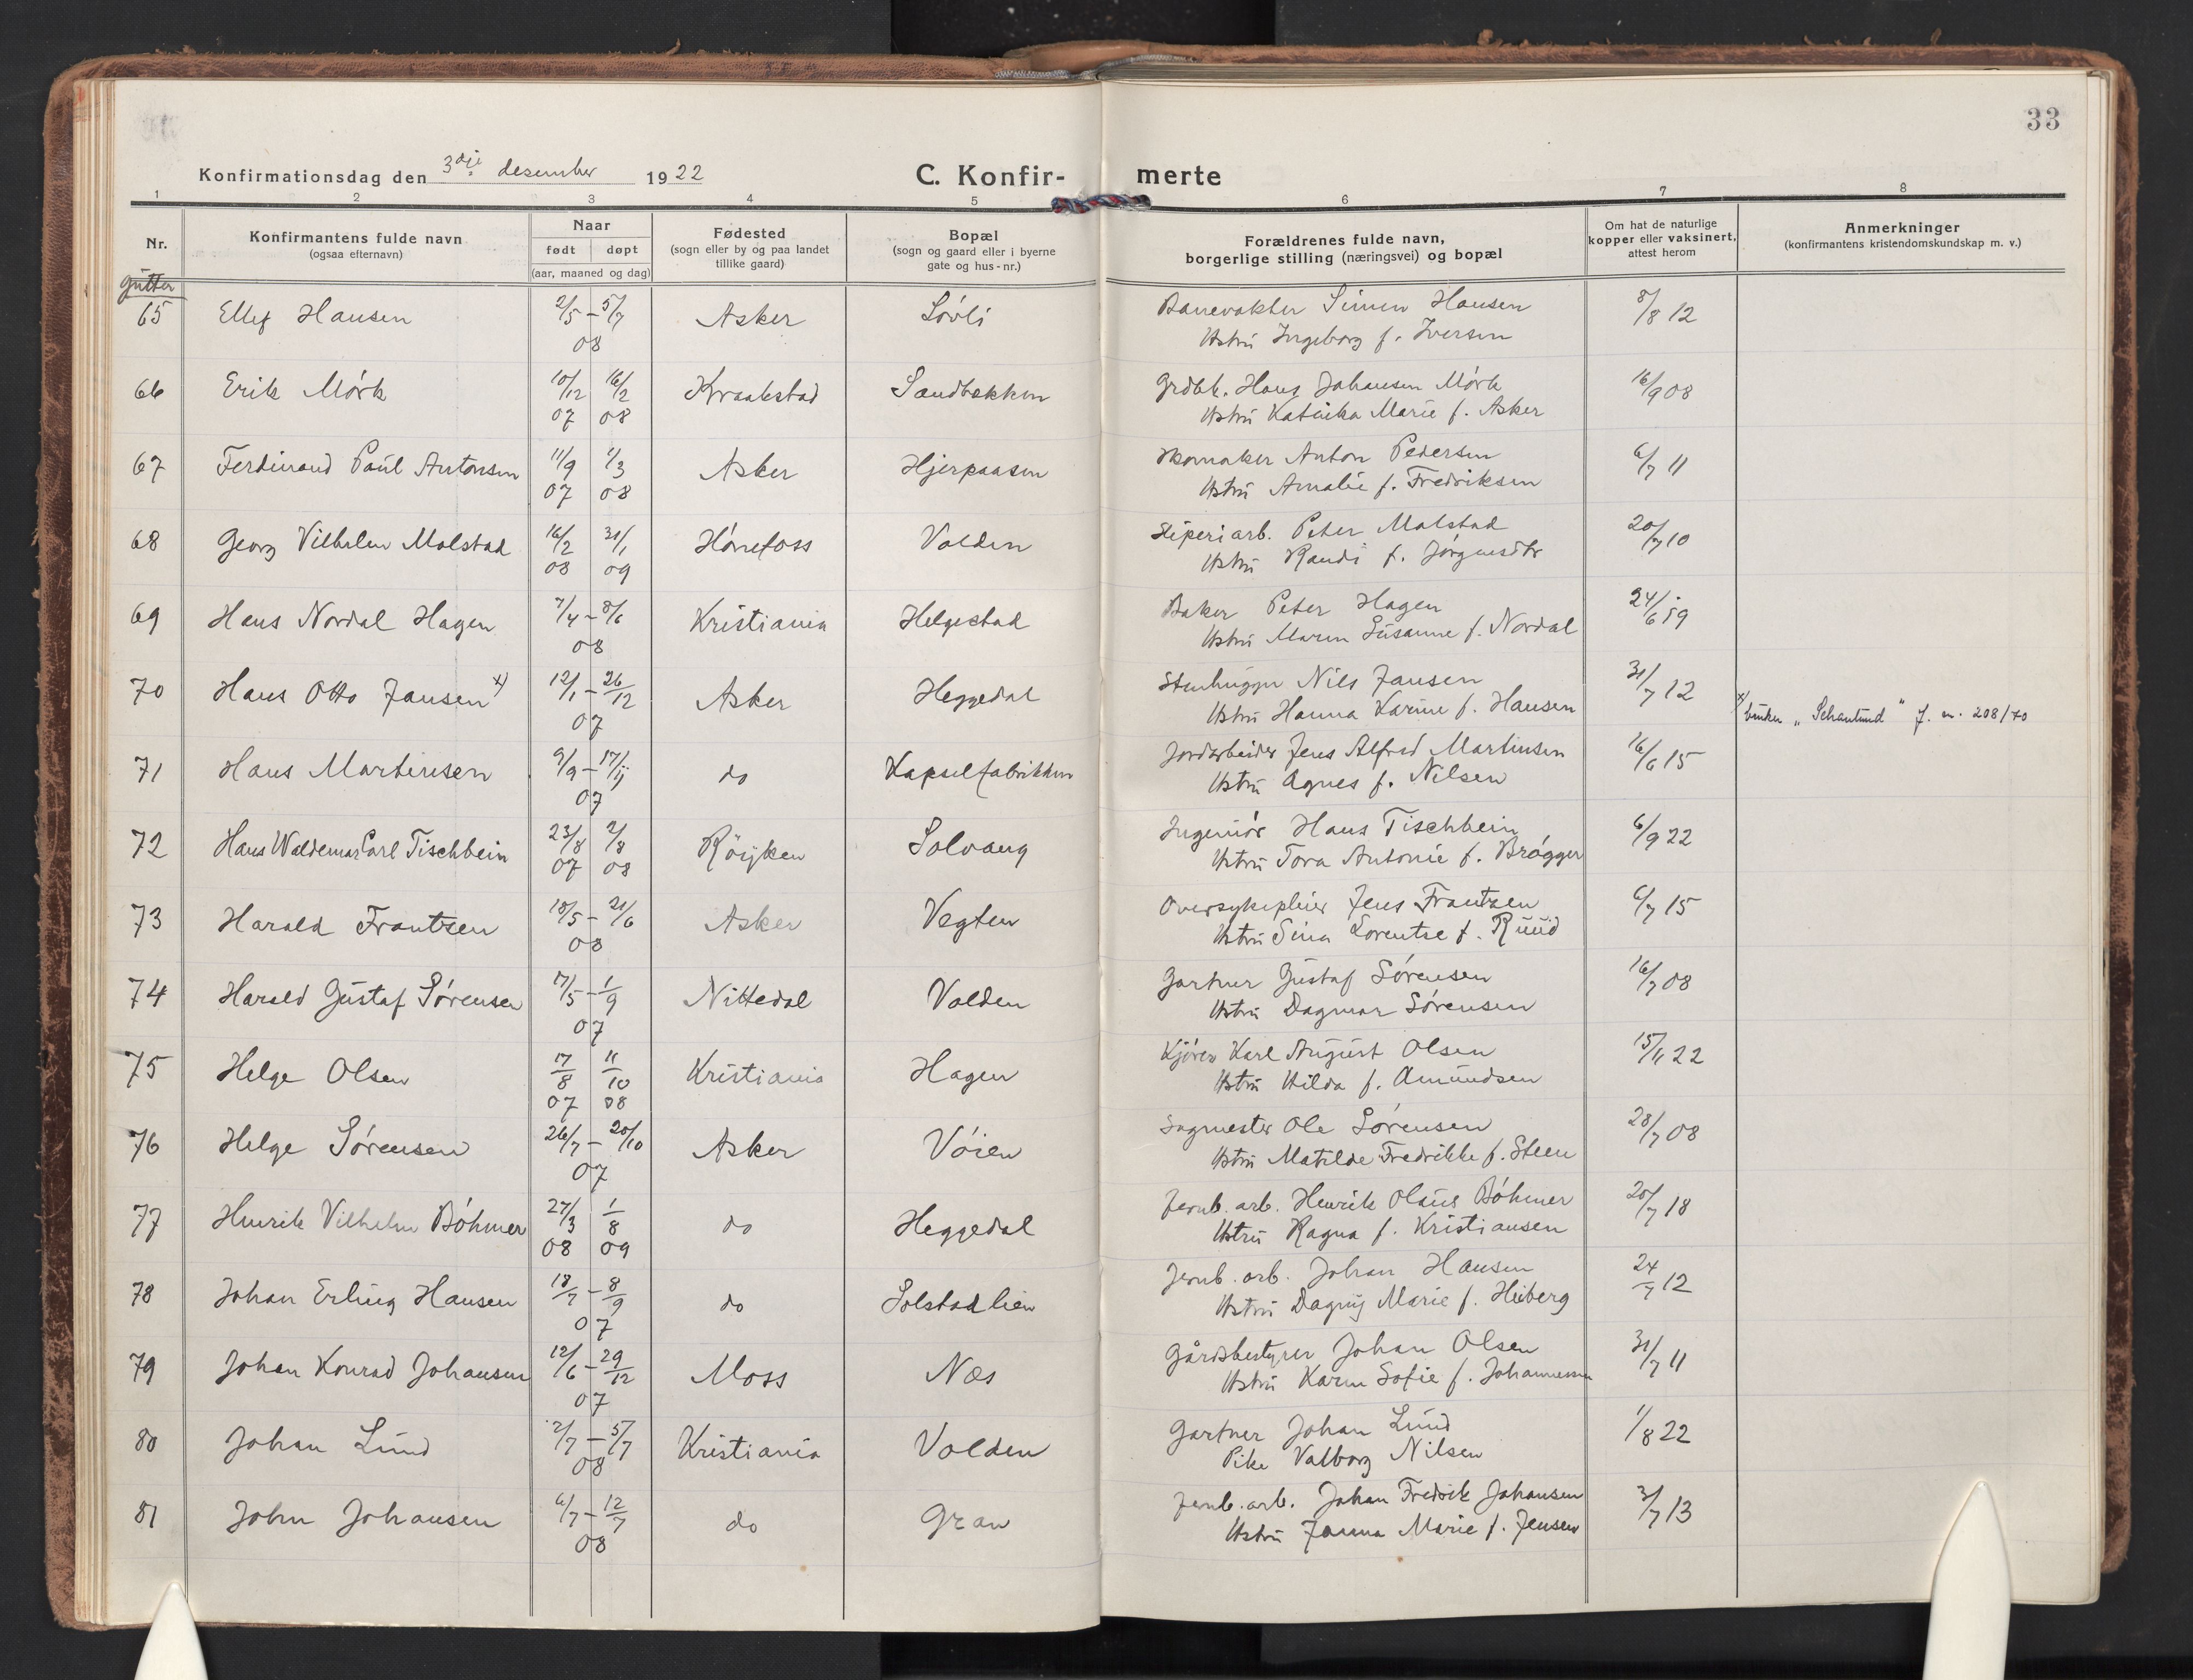 33
Konfirmationsdag den 3dje desember 1922
C. Konfir- merte
1 2 3 4 5 6 7 8
Nr.
Konfirmantens fulde navn
(ogsaa efternavn)
Naar
født døpt
(aar, maaned og dag)
Fødested
(sogn eller by og paa landet
tillike gaard)
Bopæl
(sogn og gaard eller i byerne
gate og hus-nr.)
Forældrenes fulde navn,
borgerlige stilling (næringsvei) og bopæl
Om hat de naturlige
kopper eller vaksinert,
attest herom
Anmerkninger
(konfirmantens kristendomskundskap m. v.)
Gutter
65 Ellef Hansen 2/5 – 5/7 Asker Løvli Banevokter Simen Hansen 8/8 12
08 Hstru Ingeborg f. Iversen
66 Erik Mørk 10/12 16/2 Kraakstad Sandbekken Grdbk. Hans Johansen Mørk 16/9 08
07 08 Hstru Katinka Marie f. Asker
67 Ferdinand Paul Antonsen 11/9 1/3 Asker Hjerpaasen Skomaker Anton Pedersen 6/7 11
07 08 Hstru Amalie f. Fredriksen
68 Georg Vilhelm Molstad 16/2 31/1 Hønefoss Volden Sliperiarb. Peter Molstad 20/7 10
08 09 Hstru Randi f. Jørgensdtr
69 Hans Nordal Hagen 7/4 – 8/6 Kristiania Helgestad Baker Peter Hagen 24/6 19
08 Hstru Maren Susanne f. Nordal
70 Hans Otto Jansen x) 12/1 – 26/12 Asker Heggedal Stenhugger Nils Jansen 31/7 12
07 Hstru Hanna Karine f. Hansen x) bruker „Schaulund" J. nr. 208/40
71 Hans Martinsen 9/9 – 17/11 do Kapselfabrikken Jordarbeider Jens Alfred Martinsen 16/6 15
07 Hstru Agnes f. Nilsen
72 Hans Waldemar Carl Tischbein 23/8 2/8 Röyken Solvang Ingeniør Hans Tischbein 6/9 22
07 08 Hstru Tora Antonie f. Brøgger
73 Harald Frantzen 18/5 – 21/6 Asker Vegten Oversykepleier Jens Frantzen 6/7 15
08 Hstru Sina Lorentse f. Ruud
74 Harald Gustaf Sørensen 17/5 – 1/9 Nittedal Volden Gartner Gustaf Sørensen 16/7 08
07 Hstru Dagmar Sørensen
75 Helge Olsen 17/8 11/10 Kristiania Hagen Kjører Karl August Olsen 15/11 22
07 08 Hstru Hilda f. Amundsen
76 Helge Sørensen 26/7 – 20/10 Asker Vøien Sagmester Ole Sørensen 28/7 08
07 Hstru Matilde Fredrikke f. Steen
77 Henrik Vilhelm Bøhmer 27/3 1/8 do Heggedal Jernb. arb. Henrik Olaus Bøhmer 20/7 18
08 09 Hstru Ragna f. Kristiansen
78 Johan Erling Hansen 18/7 – 8/9 do Solstadlien Jernb. arb. Johan Hansen 24/7 12
07 Hstru Dagny Marie f. Heiberg
79 Johan Konrad Johansen 12/6 – 29/12 Moss Næs Gårdsbestyrer Johan Olsen 31/7 11
07 Hstru Karen Sofie f. Johannessen
80 Johan Lund 2/7 – 5/7 Kristiania Volden Gartner Johan Lund 1/8 22
08 Pike Valborg Nilsen
81 John Johansen 6/7 – 12/7 do Gran Jernb. arb. Johan Fredrik Johansen 3/7 13
08 Hstru Janna Marie f. Jensen